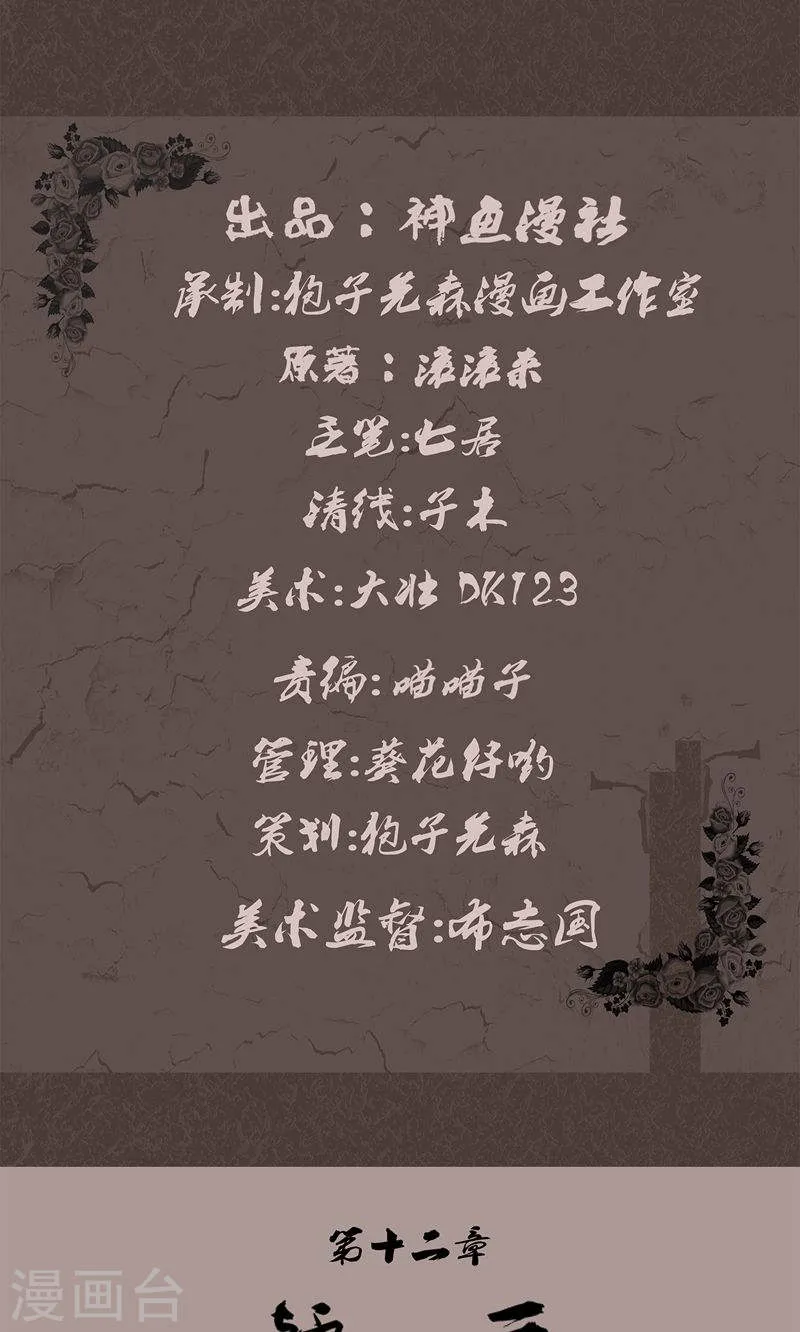 出品：神鱼漫社
承制:狍子先森漫画工作室
原著：滚滚来
主笔:七居
清线:子木
美术:大壮 DK123
责编:喵喵子
管理:葵花仔哟
策划:狍子先森
美术监督:布志国
第十二章
漫画台